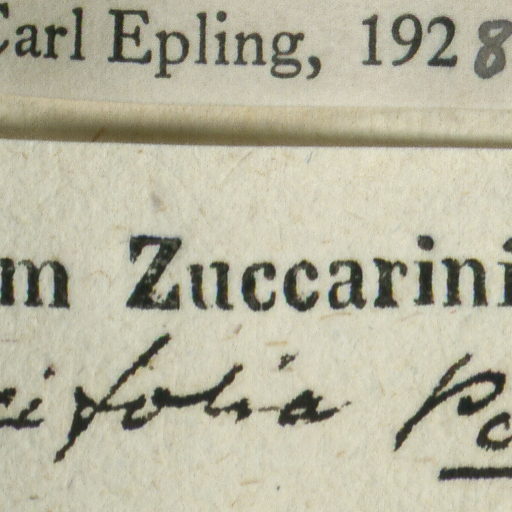 Carl Epling, 1928
m Zuccarini
cifolia Po